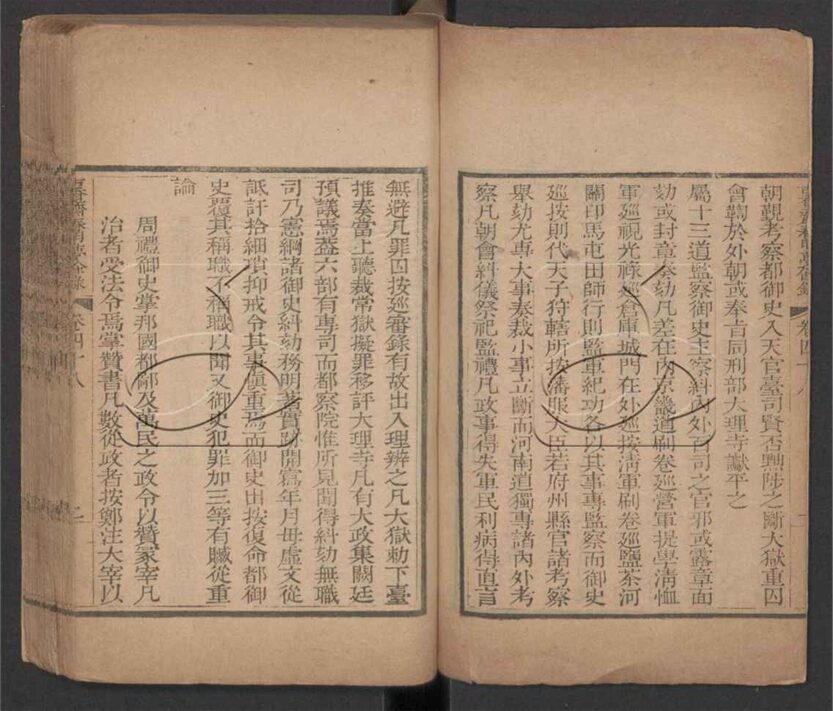 朝覲考察都御史入天官臺司賢否黜陟之斷大獄重囚
會鞫於外朝或奉旨同刑部大理寺讞平之
屬十三道監察御史主察糾內外百司之官邪或露章面
劾或封章奏劾凡差在內京畿道刷卷巡營軍提學清恤
軍巡視光祿巡倉庫城門在外巡按淸軍刷卷巡鹽茶河
關印馬屯田師行則監軍紀功各以其事專監察而御史
巡按則代天子狩轄所按藩服大臣若府州縣官諸考察
舉劾尤專大事奏裁小事立斷而河南道獨專諸內外考
察凡朝會糾儀祭祀監禮凡政事得失軍民利病得直言
無避凡罪囚按巡審錄有故出入理辨之凡大獄勅下臺
推奏當上聽裁常獄擬罪移評大理寺凡有大政集闕廷
預議焉蓋六部有專司而都察院惟所見聞得糾劾無職
司乃憲綱諸御史糾劾務明著實跡開寫年月毋虛文從
詆訐拾細瑣抑戒令其事愼重焉而御史出按復命都御
史覆其稱職不稱職以聞又御史犯罪加三等有贓從重
論
周禮御史掌邦國都鄙及萬民之政令以贊冢宰凡
治者受法令焉掌贊書凡數從政者按鄭注大宰以
卷四十八